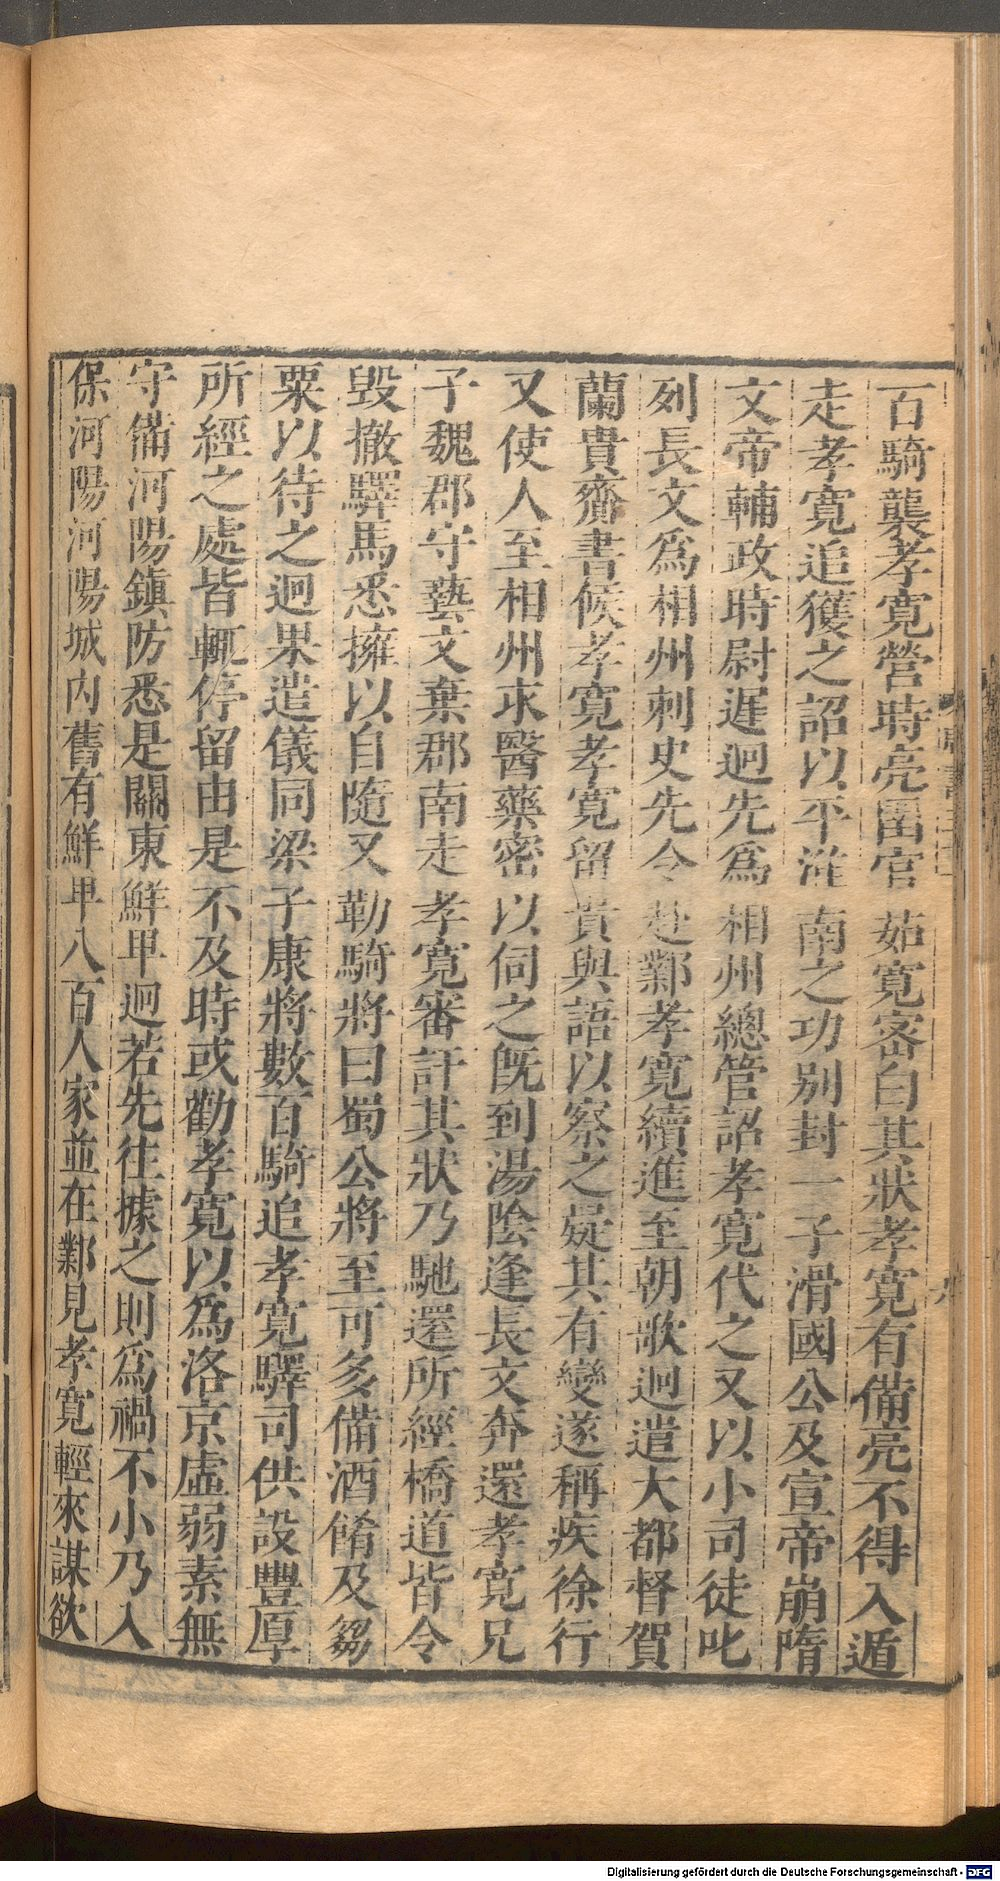 百騎襲孝寬營時亮圉官茹寬密白其狀孝寬有備亮不得入遁
走孝寬追獲之詔以平淮南之功別封一子滑國公及宣帝崩隋
文帝輔政時尉遲迥先為相州總管詔孝寬代之又以小司徒叱
列長文爲相州刺史先令赴鄴孝寬續進至朝歌迥遣大都督賀
蘭貴齎書候孝寬孝寬留貴與語以察之疑其有變遂稱疾徐行
又使人至相州求醫藥密以伺之既到湯陰逢長文奔還孝寬兄
子魏郡守藝文棄郡南走孝寬審訐其狀乃馳還所經橋道皆令
毀撤驛馬悉擁以自隨又勒騎將曰蜀公將至可多備酒餚及芻
粟以待之迥果遣儀同梁子康將數百騎追孝寬驛司供設豐厚
所經之處皆輒停留由是不及時或勸孝寬以為洛京虛弱素無
守備河陽鎮防悉是關東鮮卑迥若先往據之則爲禍不小乃入
保河陽河陽城內舊有鮮卑八百人家並在鄴見孝寬輕來謀欲
Digitalisierung gefördert durch die Deutsche Forschungsgemeinschaft - DFG